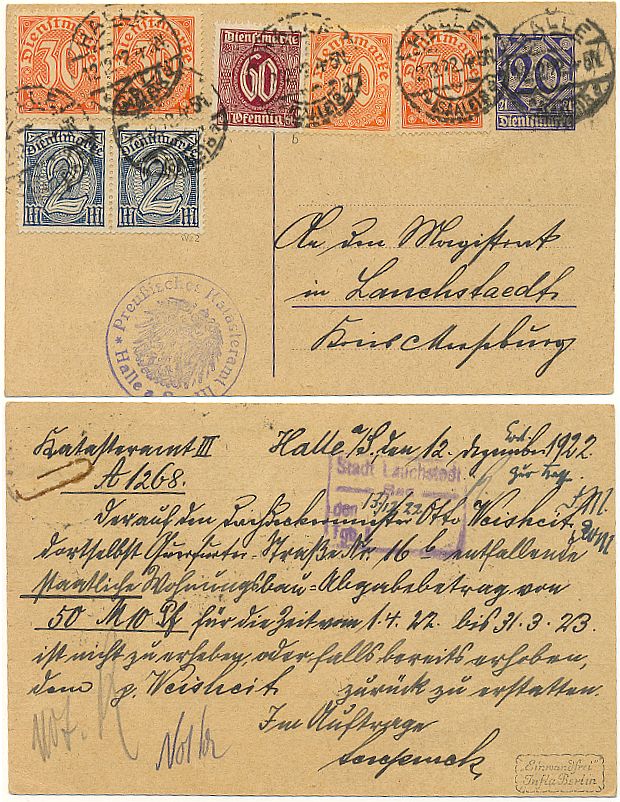 30 Dienstmarke
Dienstmarke
Dienstmarke 60 Pfennig
Dienstmarke
Dienstmarke
20 Dienstmarke
HALLE (SAALE)
Dienstmarke 2 M
Dienstmarke 2 M
An den Magistrat
in Lauchstaedt
Kreis Merseburg
Preußisches Katasteramt III
Halle a. S.
Katasteramt III
Halle a/S. den 12. Dezember 1922
A 1268.
zur
Stadt Lauchstedt
Eing.
den 13/12 22
Tgb.
Der auf den Dachdeckermeister Otto Weisheit
dortselbst Querfurter-Straße Nr. 16 b entfallende
staatliche Wohnungsbau-Abgabebetrag von
50 M 10 Pf für die Zeit vom 1.4.22. bis 31.3.23.
ist nicht zu erheben, oder falls bereits erhoben,
dem p. Weisheit zurück zu erstatten.
Im Auftrage
Not.
"Einwandfrei"
Infla Berlin